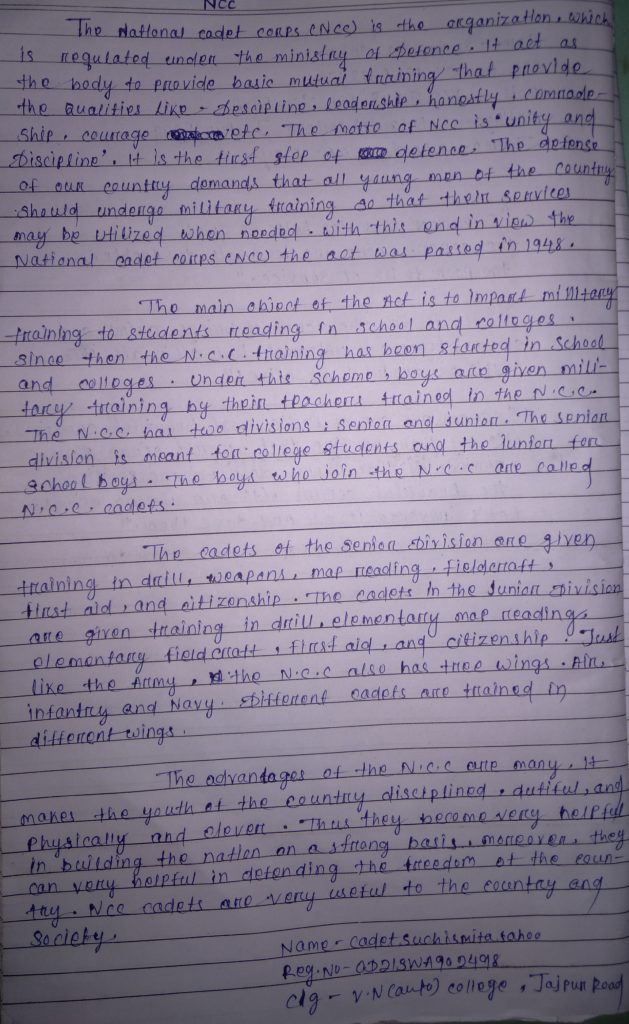 NCC
The National cadet corps (NCC) is the organization, which
is regulated under the ministry of Defence. It act as
the body to provide basic mutual training that provide
the Qualities like - Descipline, leadership, honestly, comrade-
ship, courage etc. The motto of NCC is "unity and
Discipline". It is the first step of defence. The defense
of our country demands that all young men of the country
should undergo military training so that their services
may be utilized when needed. with this end in view the
National cadet corps (NCC) the act was passed in 1948.
The main object of the Act is to impart military
training to students reading in school and colloges.
since then the N.C.C. training has been started in school
and colloges. Under this scheme, boys are given mili-
tary training by their teachers trained in the N.C.C.
The N.C.C. has two divisions : senior and junior. The senior
division is meant for college students and the Junior for
school boys. The boys who join the N.C.C are called
N.C.C. cadets.
The cadets of the senior Division are given
training in drill, weapons, map reading, fieldcraft,
first aid, and citizenship. The cadets in the Junior Division
are given training in drill, elementary map reading,
elementary fieldcraft, first aid, and citizenship. Just
like the Army, the N.C.C also has three wings. Air,
infantry and Navy. Different cadets are trained in
different wings.
The advantages of the N.C.C are many. It
makes the youth of the country disciplined, dutiful, and
Physically and clever. Thus they become very helpful
in building the nation on a strong basis, moreover, they
can very helpful in defending the freedom of the coun-
try. NCC cadets are very useful to the country and
society.
Name - Cadet Suchismita sahoo
Reg.No - OD21SWA902498
clg - V.N (auto) college, Jajpur Road